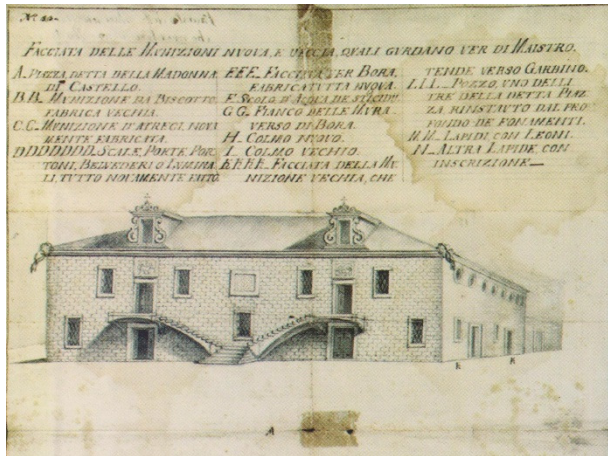 FACCIATA DELLE MVNIZIONI NVOVA, E VECCIA, QVALI GVRDANO VER DI MAISTRO.
A. PIAZZA, DETTA DELLA MADONNA
DI CASTELLO.
B.B. MVNIZIONE DA BISCOTTO
FABRICA VECHIA.
C.C. MVNIZIONE D'ATREGI, NOVA
MENTE FABRICATA.
DDDDDDDD. SCALE, PORTE, POR-
TONI, BELVEDERI O LVMINA-
LI, TVTTO NOVAMENTE FATTO
EEE. FACCIATA PER BORA,
FABRICA TVTTA NVOVA.
F. SCOLO D'AQVA DE
GG. FIANCO DELLE MVRA
VERSO DI BORA.
H. COLMO NVOVO.
I. COLMO VECHIO.
KKKK. FACCIATA DELLA MV-
NIZIONE VECHIA, CHE
TENDE VERSO GARBINO.
L.L.L. POZZO, VNO DELLI
TRE DELLA DETTA PIAZ-
ZA RINSTAVTO DAL PRO-
FONDO DE FONAMENTI.
M.M. LAPIDI, CON LEONI.
N. ALTRA LAPIDE, CON
INSCRIZIONE
K
K
A